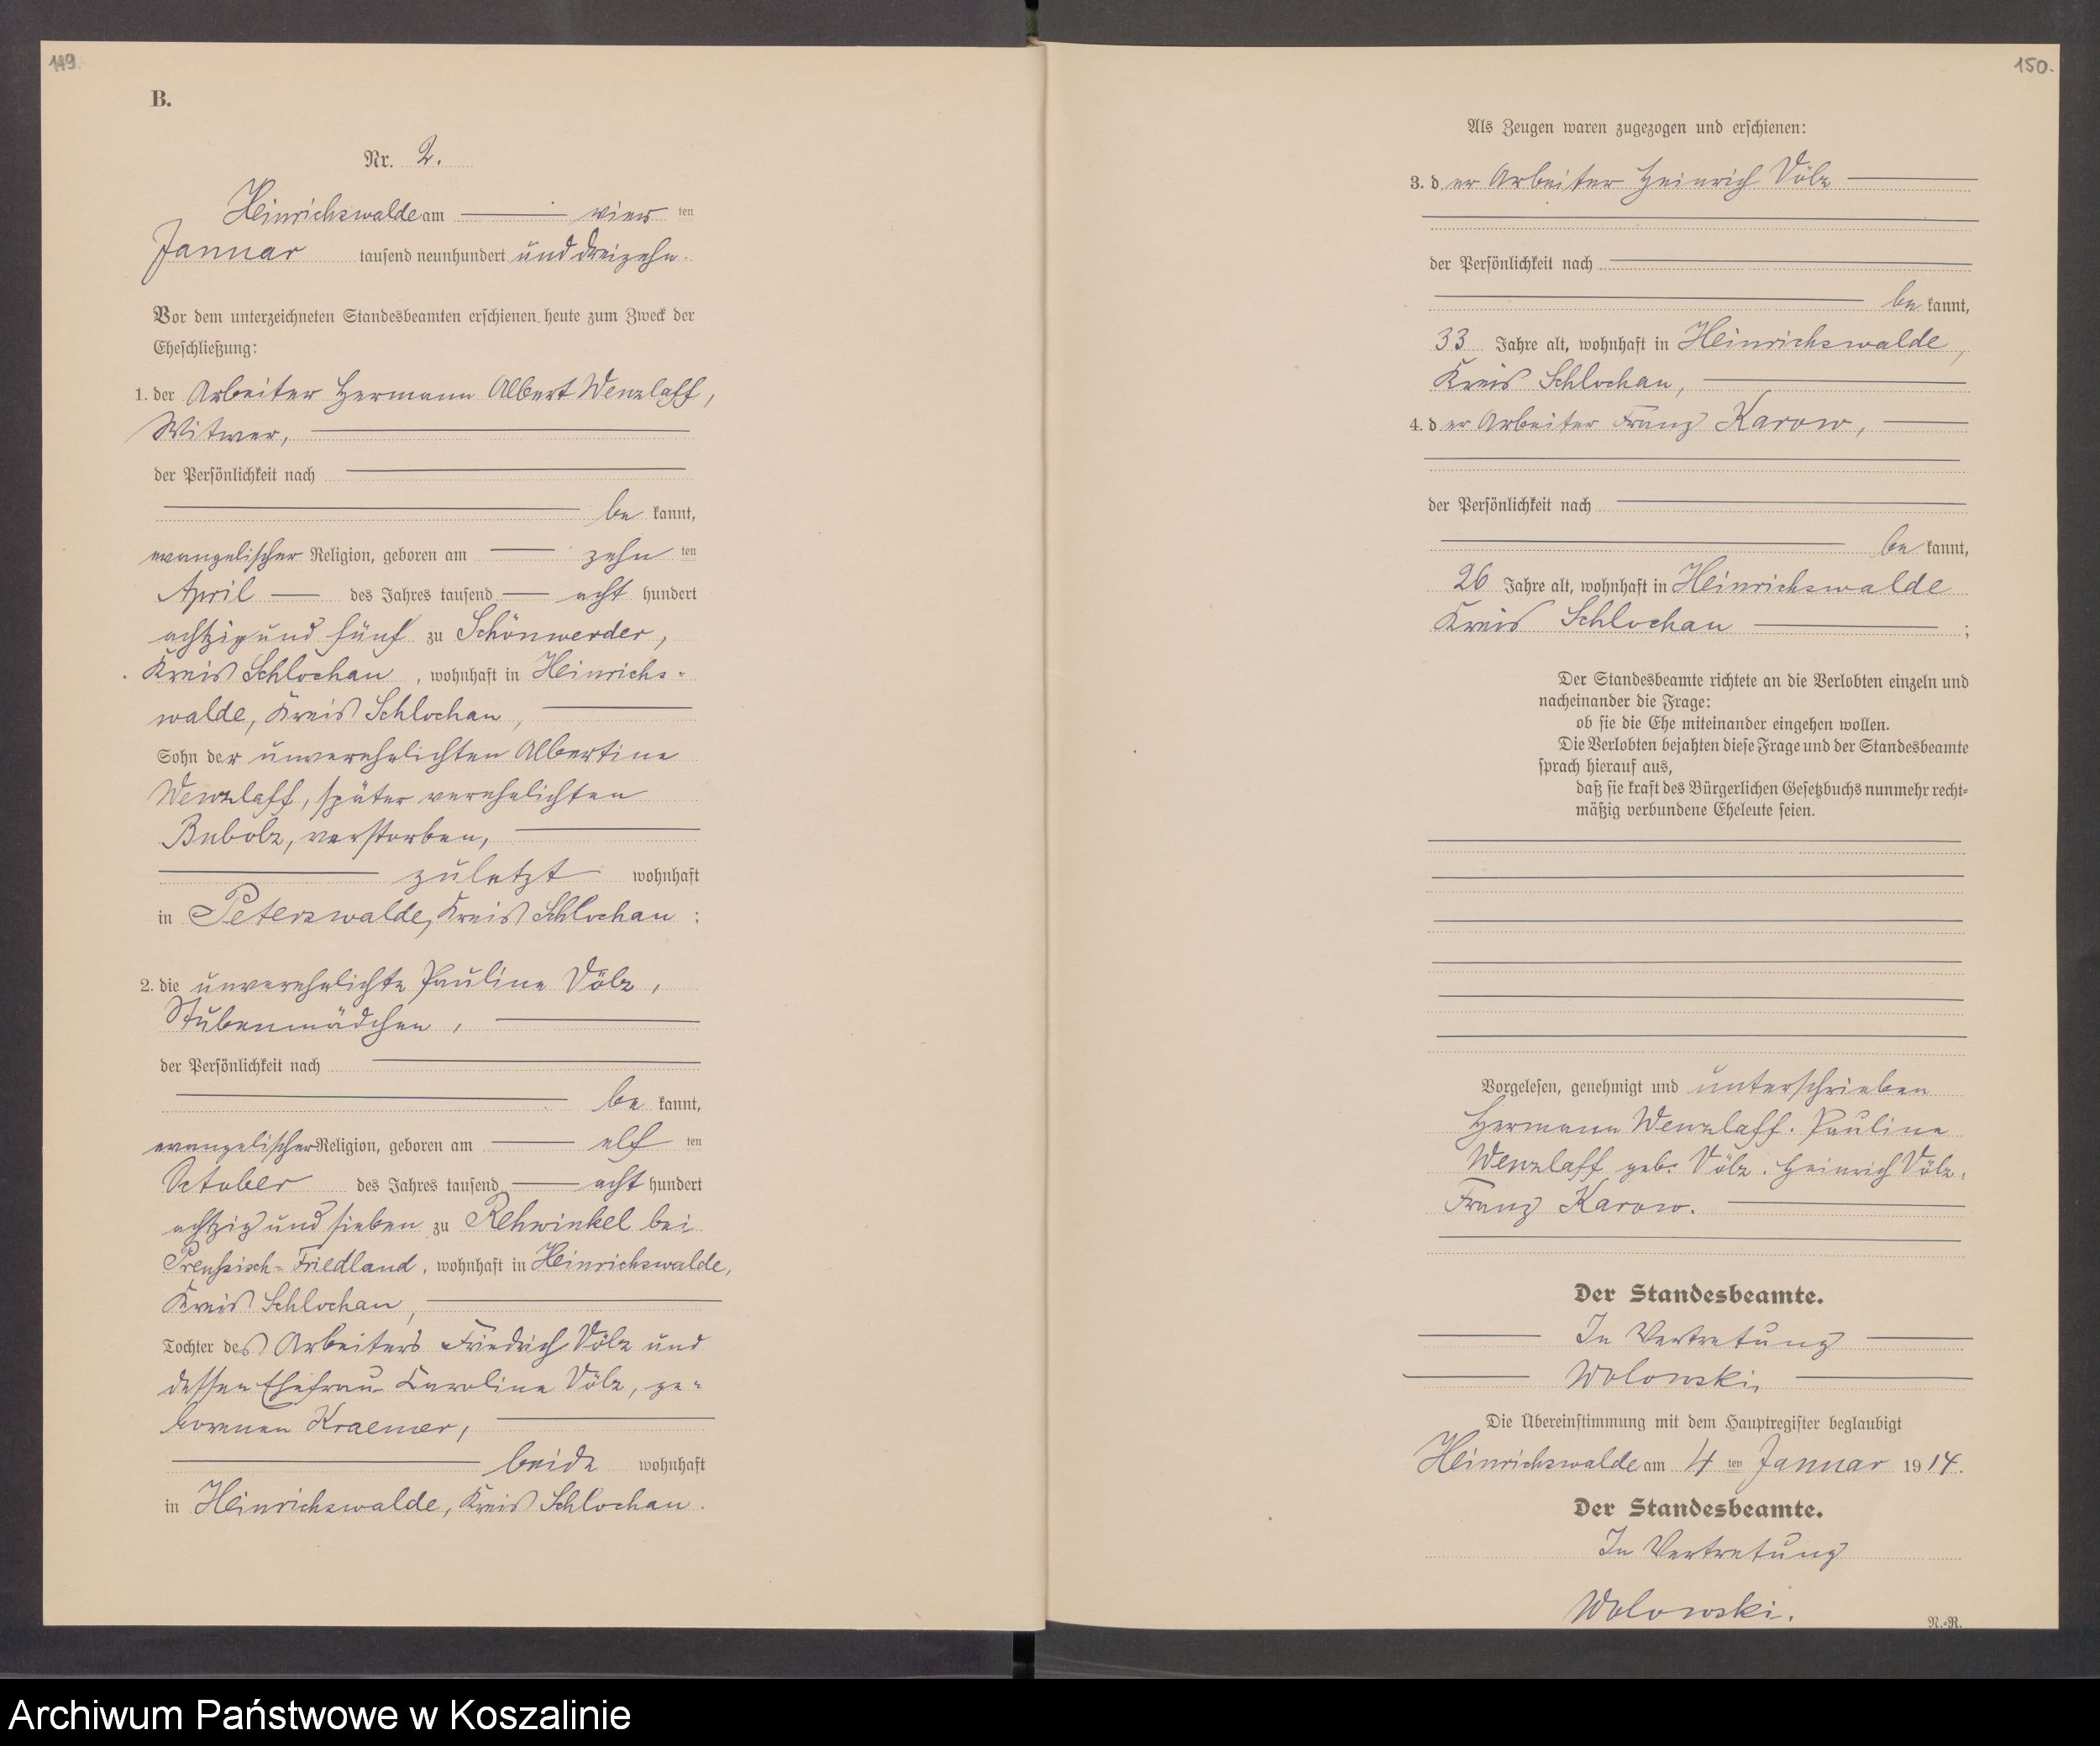 149.
B.
Nr. 2.
Heinrichswalde am vier ten
Januar tausend neunhundert und dreizehn.
Vor dem unterzeichneten Standesbeamten erschienen heute zum Zweck der
Eheschließung:
1. der Arbeiter Hermann Albert Wenzlaff,
Witwer,
der Persönlichkeit nach
be kannt,
evangelischer Religion, geboren am zehn ten
April des Jahres tausend acht hundert
achtzig und fünf zu Schönwerder,
Kreis Schlochau, wohnhaft in Heinrichs-
walde, Kreis Schlochau,
Sohn der unverehelichten Albertine
Wenzlaff, später verehelichten
Bubolz, verstorben,
zuletzt wohnhaft
in Peterswalde, Kreis Schlochau;
2. die unverehelichte Pauline Völz,
Stubenmädchen,
der Persönlichkeit nach
be kannt,
evangelischer Religion, geboren am elf ten
October des Jahres tausend acht hundert
achtzig und sieben zu Rehwinkel bei
Preußisch-Friedland, wohnhaft in Heinrichswalde,
Kreis Schlochau,
Tochter des Arbeiters Friedrich Völz und
dessen Ehefrau Karoline Völz, ge-
borenen Kraemer,
beide wohnhaft
in Heinrichswalde, Kreis Schlochau.
150.
Als Zeugen waren zugezogen und erschienen:
3. der Arbeiter Heinrich Völz
der Persönlichkeit nach
be kannt,
33 Jahre alt, wohnhaft in Heinrichswalde,
Kreis Schlochau,
4. der Arbeiter Franz Karow,
der Persönlichkeit nach
be kannt,
26 Jahre alt, wohnhaft in Heinrichswalde
Kreis Schlochau;
Der Standesbeamte richtete an die Verlobten einzeln und
nacheinander die Frage:
ob sie die Ehe miteinander eingehen wollen.
Die Verlobten bejahten diese Frage und der Standesbeamte
sprach hierauf aus,
daß sie kraft des Bürgerlichen Gesetzbuchs nunmehr recht-
mäßig verbundene Eheleute seien.
Vorgelesen, genehmigt und unterschrieben
Hermann Wenzlaff. Pauline
Wenzlaff geb. Völz. Heinrich Völz.
Franz Karow.
Der Standesbeamte.
In Vertretung
Wolowski.
Die Übereinstimmung mit dem Hauptregister beglaubigt
Heinrichswalde am 4 ten Januar 1914.
Der Standesbeamte.
In Vertretung
Wolowski.
N.-R.
Archiwum Państwowe w Koszalinie